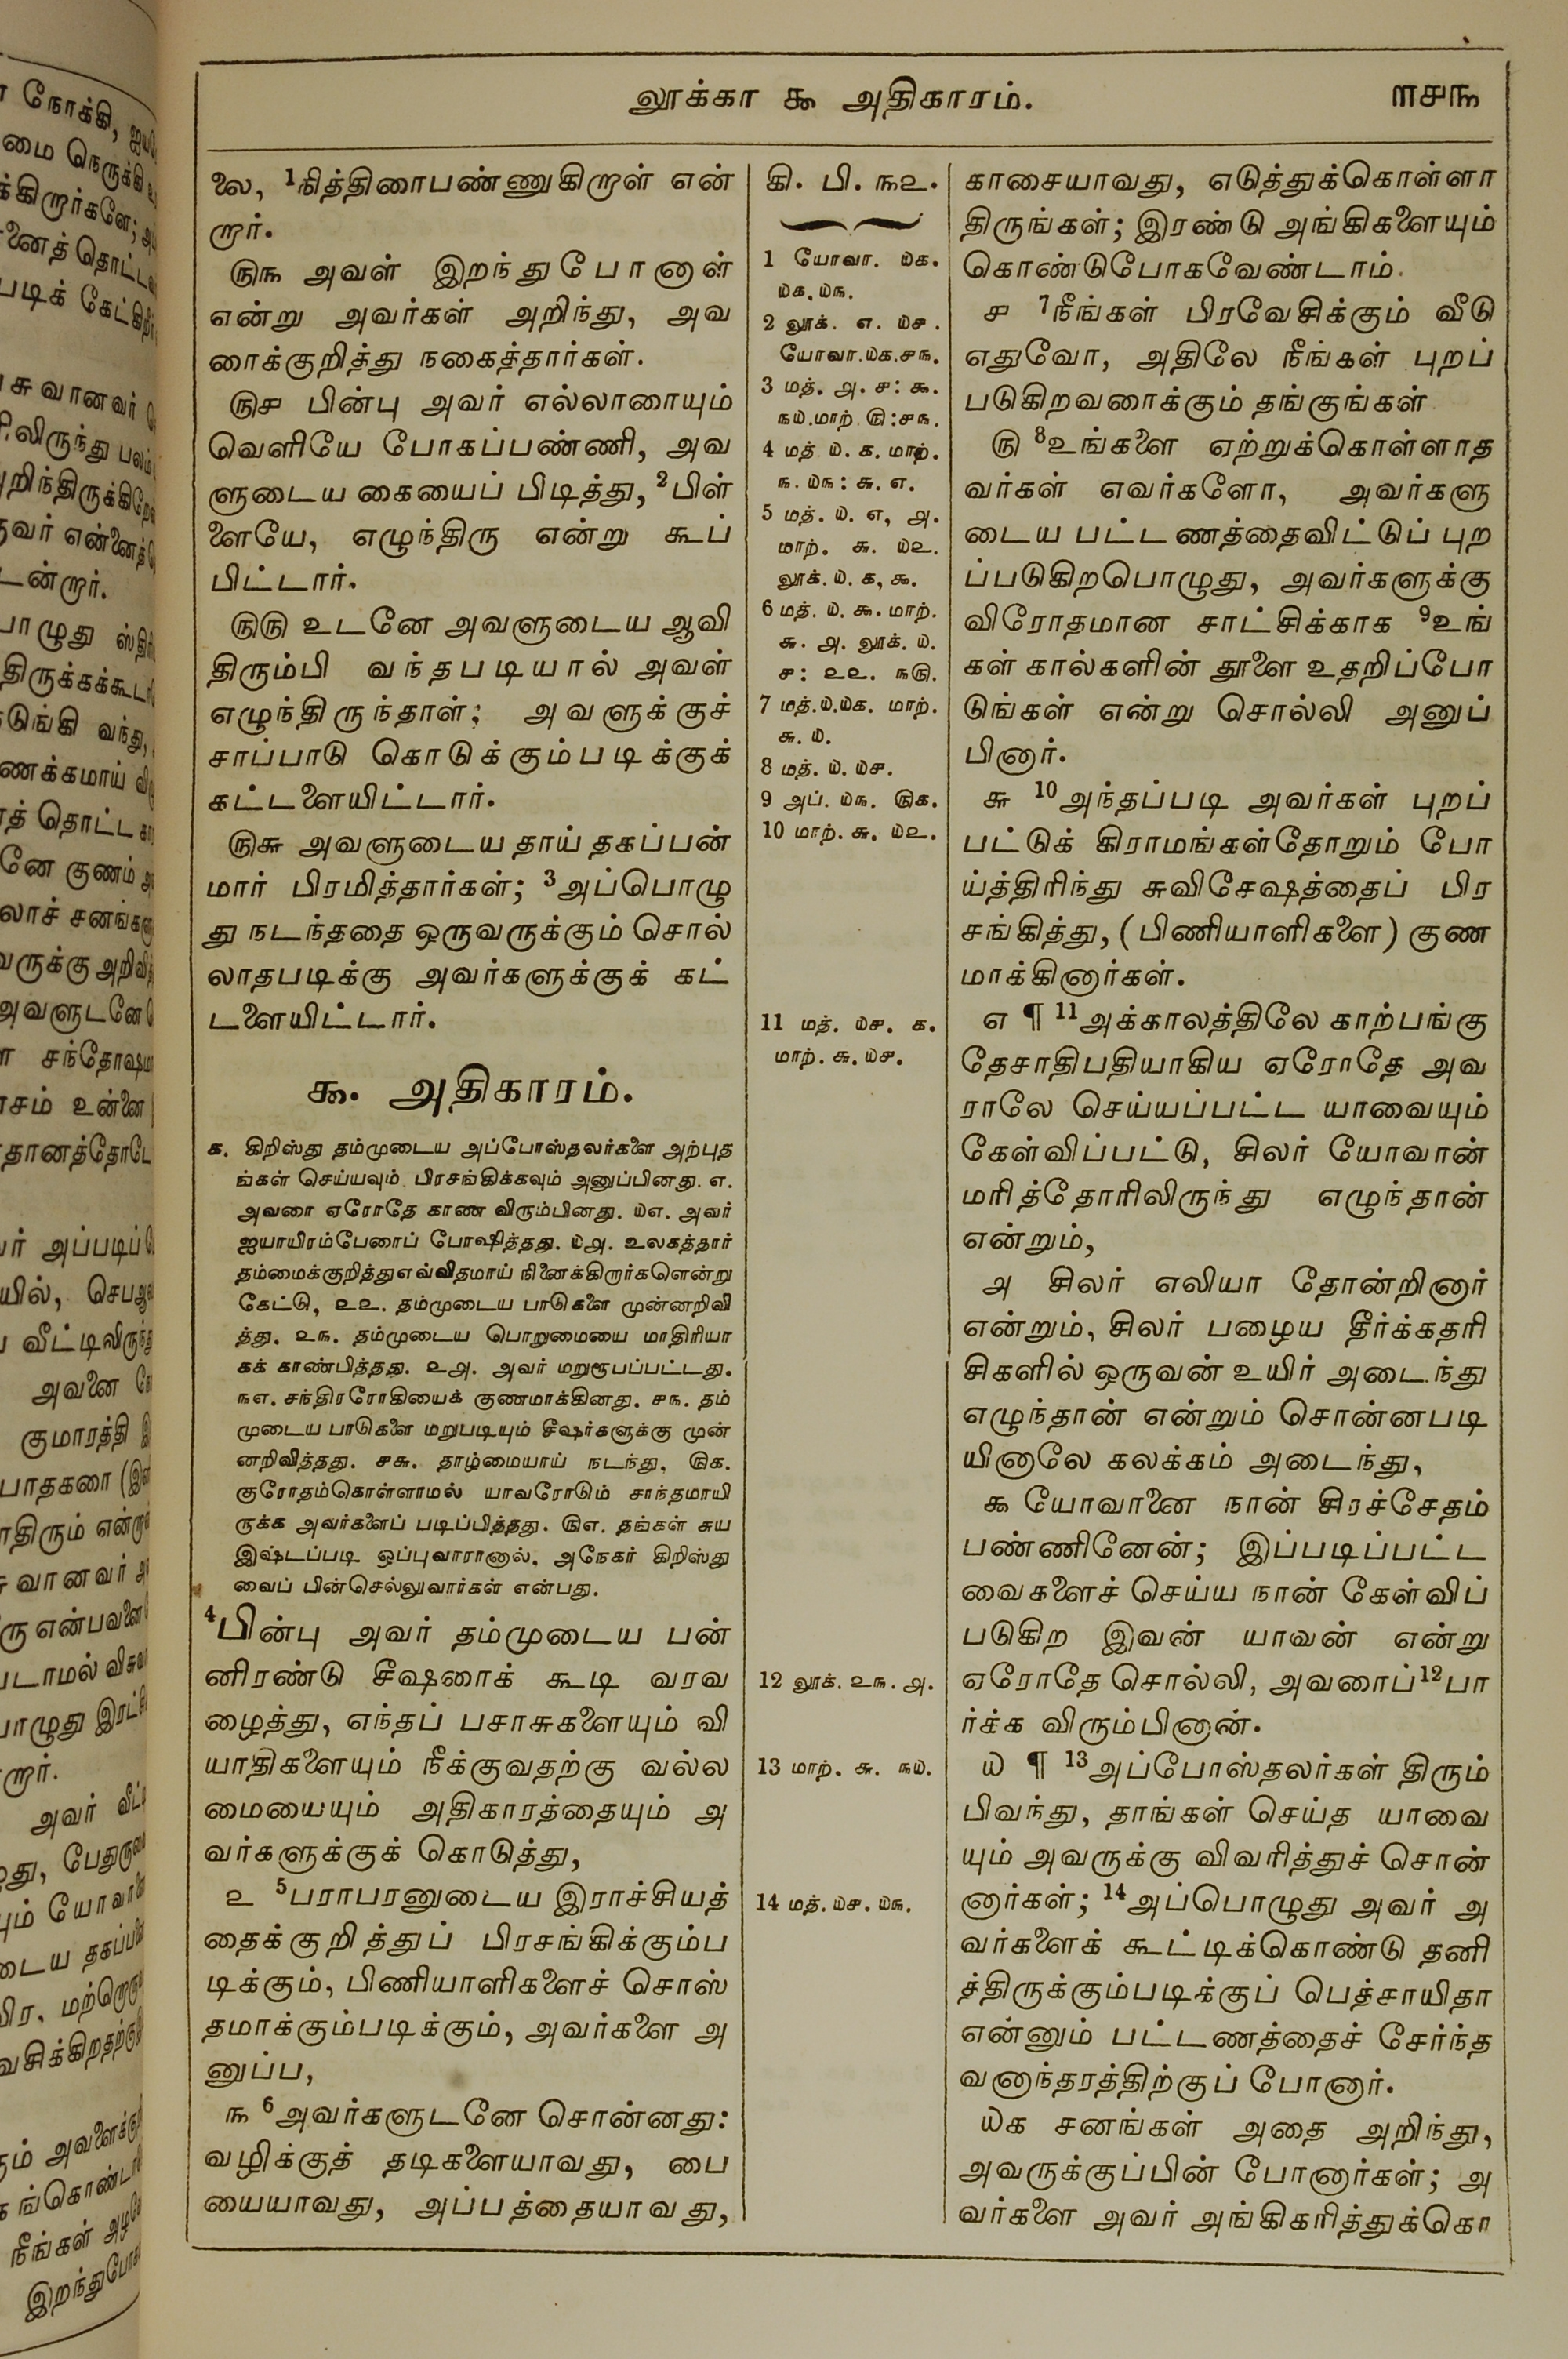 லூக்கா ௯ அதிகாரம்.
௱௪௩
லை, 1நித்திரைபண்ணுகிறாள் என்
றார்.
௫௩ அவள் இறந்துபோனாள்
என்று அவர்கள் அறிந்து, அவ
ரைக்குறித்து நகைத்தார்கள்.
௫௪ பின்பு அவர் எல்லாரையும்
வெளியே போகப்பண்ணி, அவ
ளுடைய கையைப் பிடித்து, 2பிள்
ளையே, எழுந்திரு என்று கூப்
பிட்டார்.
௫௫ உடனே அவளுடைய ஆவி
திரும்பி வந்தபடியால் அவள்
எழுந்திருந்தாள்; அவளுக்குச்
சாப்பாடு கொடுக்கும்படிக்குக்
கட்டளையிட்டார்.
௫௬ அவளுடைய தாய் தகப்பன்
மார் பிரமித்தார்கள்; 3அப்பொழு
து நடந்ததை ஒருவருக்கும் சொல்
லாதபடிக்கு அவர்களுக்குக் கட்
டளையிட்டார்.
௯. அதிகாரம்.
௧. கிறிஸ்து தம்முடைய அப்போஸ்தலர்களை அற்புத
ங்கள் செய்யவும் பிரசங்கிக்கவும் அனுப்பினது. ௭.
அவரை ஏரோதே காண விரும்பினது. ௰௭. அவர்
ஐயாயிரம்பேரைப் போஷித்தது. ௰௮. உலகத்தார்
தம்மைக்குறித்துஎவ்விதமாய் நினைக்கிறார்களென்று
கேட்டு, ௨௨. தம்முடைய பாடுகளை முன்னறிவி
த்து. ௨௩. தம்முடைய பொறுமையை மாதிரியா
கக் காண்பித்தது. ௨௮. அவர் மறுரூபப்பட்டது.
௩௭. சந்திரரோகியைக் குணமாக்கினது. ௪௩. தம்
முடைய பாடுகளை மறுபடியும் சீஷர்களுக்கு முன்
னறிவித்தது. ௪௬. தாழ்மையாய் நடந்து, ௫௧.
குரோதம்கொள்ளாமல் யாவரோடும் சாந்தமாயி
ருக்க அவர்களைப் படிப்பித்தது. ௫௭. தங்கள் சுய
இஷ்டப்படி ஒப்புவாரானால், அநேகர் கிறிஸ்து
வைப் பின்செல்லுவார்கள் என்பது.
4பின்பு அவர் தம்முடைய பன்
னிரண்டு சீஷரைக் கூடி வரவ
ழைத்து, எந்தப் பசாசுகளையும் வி
யாதிகளையும் நீக்குவதற்கு வல்ல
மையையும் அதிகாரத்தையும் அ
வர்களுக்குக் கொடுத்து,
௨ 5பராபரனுடைய இராச்சியத்
தைக்குறித்துப் பிரசங்கிக்கும்ப
டிக்கும், பிணியாளிகளைச் சொஸ்
தமாக்கும்படிக்கும், அவர்களை அ
னுப்ப,
௩ 6அவர்களுடனே சொன்னது:
வழிக்குத் தடிகளையாவது, பை
யையாவது, அப்பத்தையாவது,
கி. பி. ௩௨.
1 யோவா. ௰௧.
௰௧. ௰௩.
2 லூக். ௭. ௰௪.
யோவா.௰௧.௪௩.
3 மத். ௮. ௪: ௯.
௩௰.மாற். ௫:௪௩.
4 மத் ௰. ௧. மாற்.
௩. ௰௩: ௬. ௭.
5 மத். ௰. ௭, ௮.
மாற். ௬. ௰௨.
லூக். ௰. ௧, ௯.
6 மத். ௰. ௯. மாற்.
௬. ௮. லூக். ௰.
௪: ௨௨. ௩௫.
7 மத்.௰.௰௧. மாற்.
௬. ௰.
8 மத். ௰. ௰௪.
9 அப். ௰௩. ௫௧.
10 மாற். ௬. ௰௨.
11 மத். ௰௪. ௧.
மாற். ௬. ௰௪.
12 லூக். ௨௩. ௮.
13 மாற். ௬. ௩௰.
14 மத். ௰௪. ௰௩.
காசையாவது, எடுத்துக்கொள்ளா
திருங்கள்; இரண்டு அங்கிகளையும்
கொண்டுபோகவேண்டாம்.
௪ 7நீங்கள் பிரவேசிக்கும் வீடு
எதுவோ, அதிலே நீங்கள் புறப்
படுகிறவரைக்கும் தங்குங்கள்
௫ 8உங்களை ஏற்றுக்கொள்ளாத
வர்கள் எவர்களோ, அவர்களு
டைய பட்டணத்தைவிட்டுப் புற
ப்படுகிறபொழுது, அவர்களுக்கு
விரோதமான சாட்சிக்காக 9உங்
கள் கால்களின் தூளை உதறிப்போ
டுங்கள் என்று சொல்லி அனுப்
பினார்.
௬ 10அந்தப்படி அவர்கள் புறப்
பட்டுக் கிராமங்கள்தோறும் போ
ய்த்திரிந்து சுவிசேஷத்தைப் பிர
சங்கித்து, (பிணியாளிகளை) குண
மாக்கினார்கள்.
௭ ¶ 11அக்காலத்திலே காற்பங்கு
தேசாதிபதியாகிய ஏரோதே அவ
ராலே செய்யப்பட்ட யாவையும்
கேள்விப்பட்டு, சிலர் யோவான்
மரித்தோரிலிருந்து எழுந்தான்
என்றும்,
௮ சிலர் எலியா தோன்றினார்
என்றும், சிலர் பழைய தீர்க்கதரி
சிகளில் ஒருவன் உயிர் அடைந்து
எழுந்தான் என்றும் சொன்னபடி
யினாலே கலக்கம் அடைந்து,
௯ யோவானை நான் சிரச்சேதம்
பண்ணினேன்; இப்படிப்பட்ட
வைகளைச் செய்ய நான் கேள்விப்
படுகிற இவன் யாவன் என்று
ஏரோதே சொல்லி, அவரைப்12பா
ர்க்க விரும்பினான்.
௰ ¶ 13அப்போஸ்தலர்கள் திரும்
பிவந்து, தாங்கள் செய்த யாவை
யும் அவருக்கு விவரித்துச் சொன்
னார்கள்; 14அப்பொழுது அவர் அ
வர்களைக் கூட்டிக்கொண்டு தனி
த்திருக்கும்படிக்குப் பெத்சாயிதா
என்னும் பட்டணத்தைச் சேர்ந்த
வனாந்தரத்திற்குப் போனார்.
௰௧ சனங்கள் அதை அறிந்து,
அவருக்குப்பின் போனார்கள்; அ
வர்களை அவர் அங்கிகரித்துக்கொ